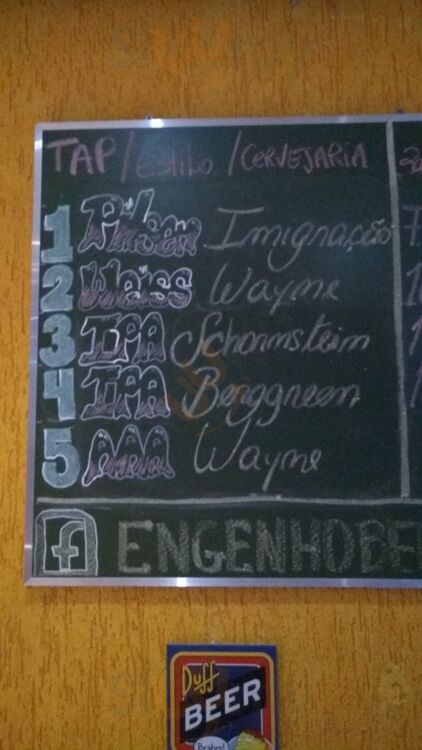 TAP / estilo / CERVEJARIA
1 Pilsen Imigração
2 Weiss Wayne
3 IPA Schornstein
4 IPA Berggreen
5 AAA Wayne
f ENGENHOBE
Duff
BEER